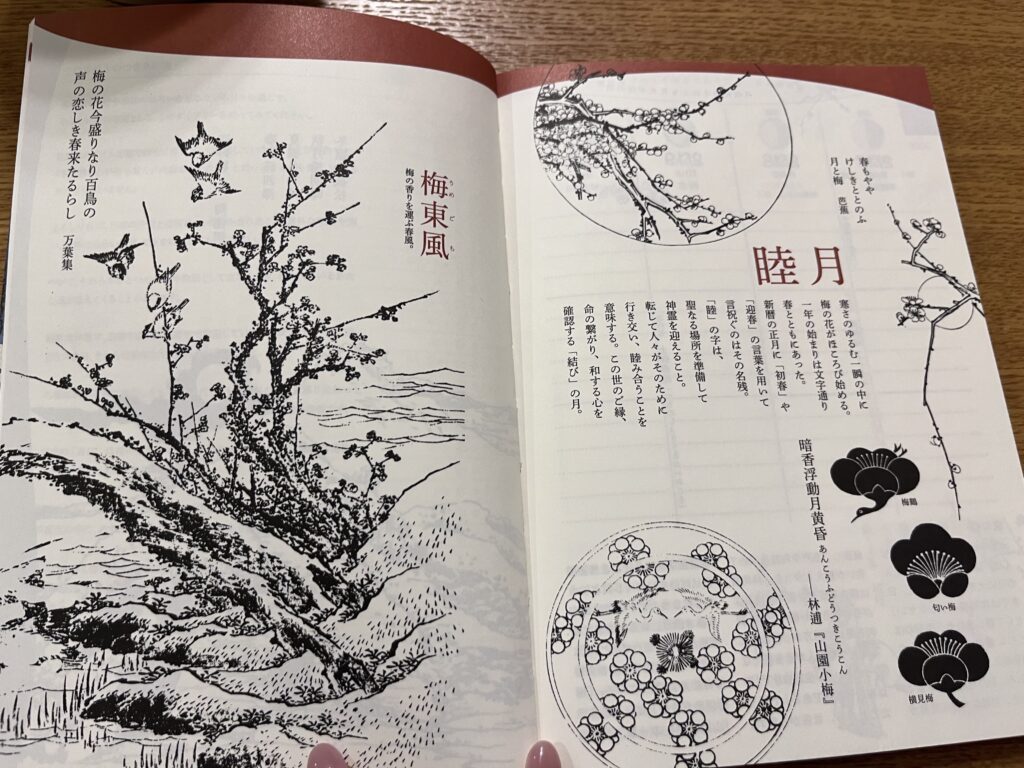 春もやや
けしきととのふ
月と梅　芭蕉
睦月
寒さのゆるむ一瞬の中に
梅の花がほころび始める。
一年の始まりは文字通り
春とともにあった。
新暦の正月に「初春」や
「迎春」の言葉を用いて
言祝ぐのはその名残。
「睦」の字は、
聖なる場所を準備して
神霊を迎えること。
転じて人々がそのために
行き交い、睦み合うことを
意味する。この世のご縁、
命の繋がり、和する心を
確認する「結び」の月。
梅鶴
匂い梅
横見梅
暗香浮動月黄昏
あんこうふどうつきこうこん
――林逋『山園小梅』
うめごち
梅東風
梅の香りを運ぶ春風。
梅の花今盛りなり百鳥の
声の恋しき春来たるらし
万葉集